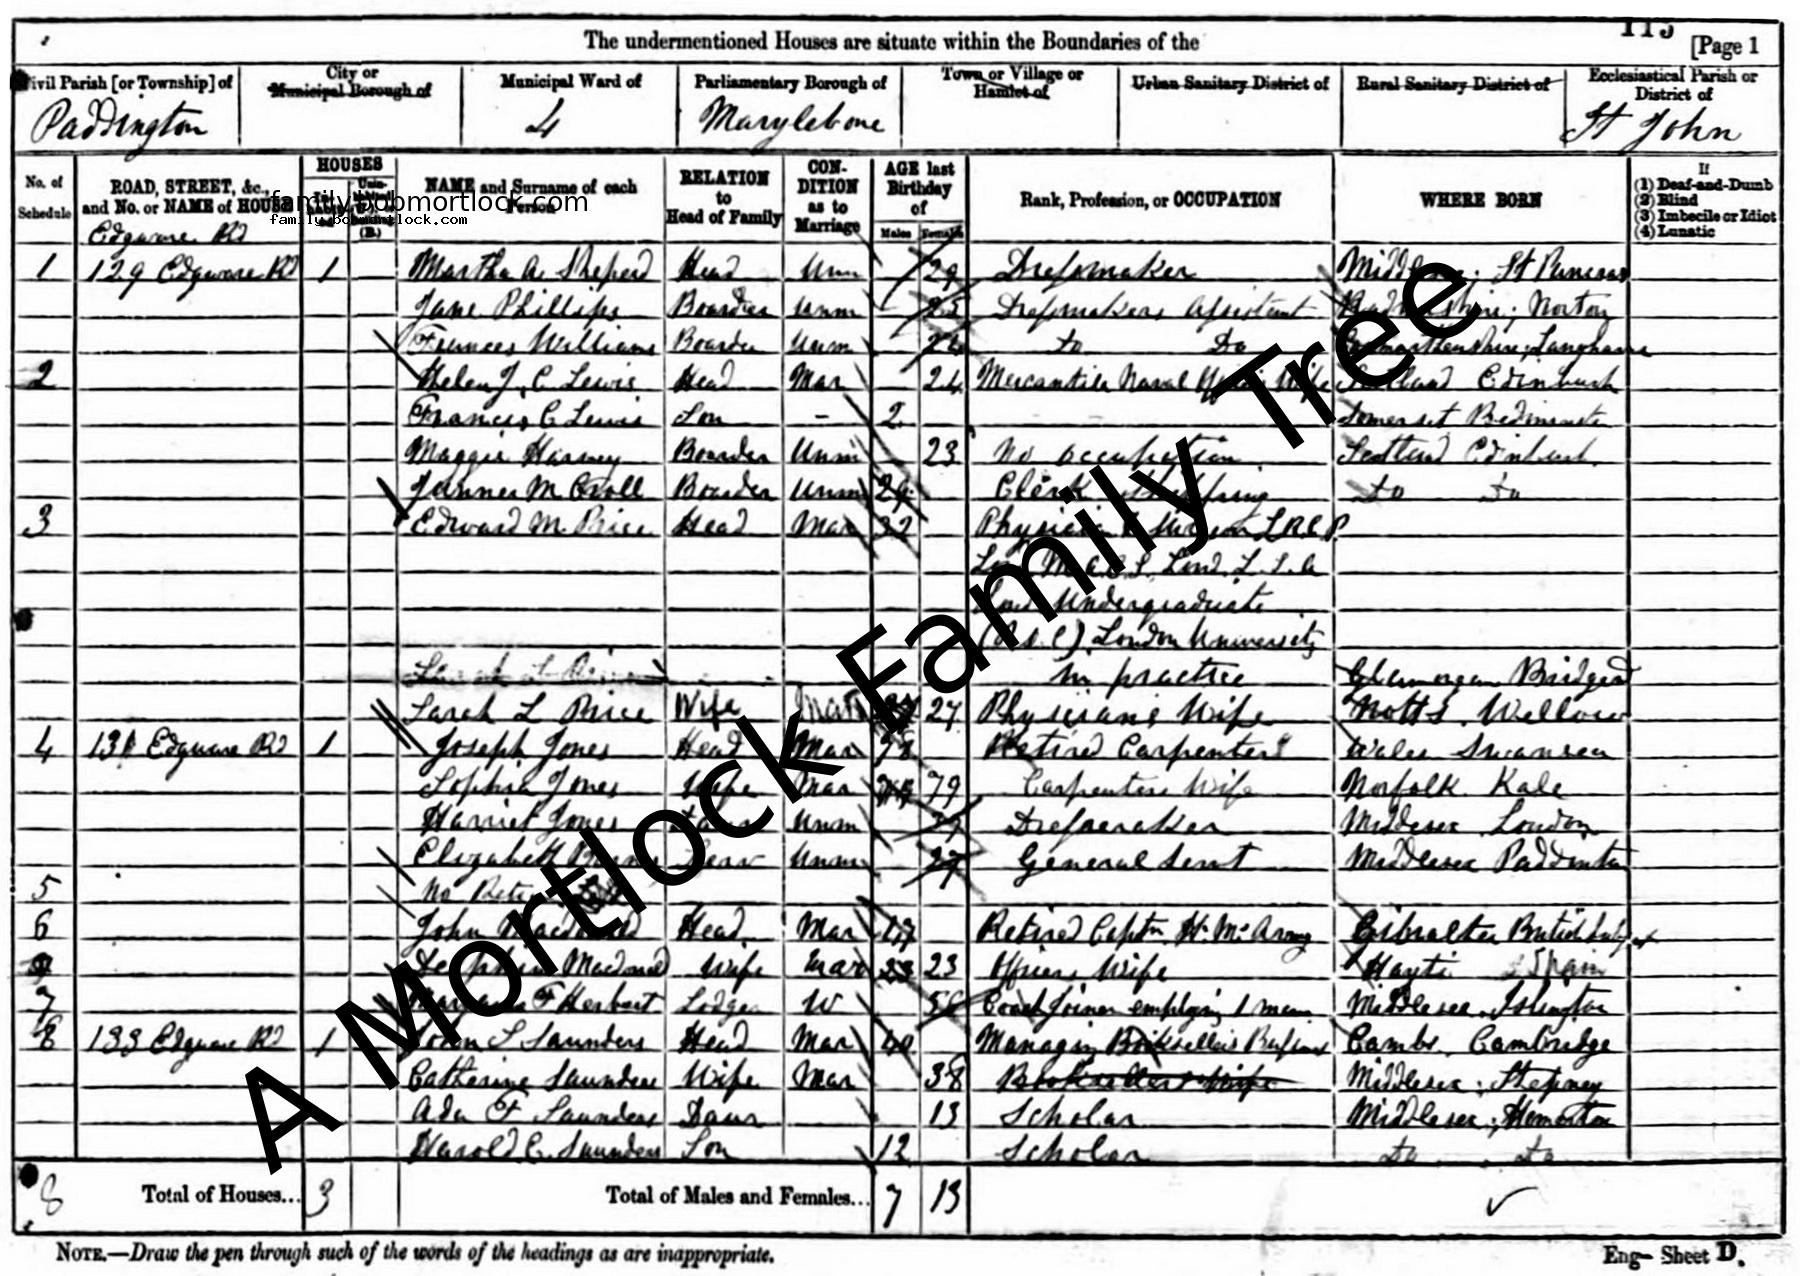 115
[Page 1
The undermentioned Houses are situate within the Boundaries of the
Civil Parish [or Township] of
City or Municipal Borough of
Municipal Ward of
Parliamentary Borough of
Town or Village or Hamlet of
Urban Sanitary District of
Rural Sanitary District of
Ecclesiastical Parish or District of
Paddington 4 Marylebone St John
No. of Schedule
ROAD, STREET, &c., and No. or NAME of HOUSE
HOUSES
(B.)
NAME and Surname of each Person
RELATION to Head of Family
CONDITION as to Marriage
AGE last Birthday of
Males Females
Rank, Profession, or OCCUPATION
WHERE BORN
If
(1) Deaf-and-Dumb
(2) Blind
(3) Imbecile or Idiot
(4) Lunatic
family.bobmortlock.com
family.bobmortlock.com
Edgware Rd
1 129 Edgware Rd 1 Martha A. Sheperd Head Unm 29 Dressmaker Middlesex; St Pancras
Jane Phillips Boarder Unm 25 Dressmakers Assistant Radnorshire; Norton
Frances Williams Boarder Unm 24 Do Do Carmarthenshire;
2 Helen J. C. Lewis Head Mar 24 Mercantile Naval Wife Scotland Edinburgh
Francis C Lewis Son - 2 Somerset Bedminster
Maggie Boarder Unm 23 No occupation Scotland Edinburgh
M Croll Boarder Unm 29 Clerk Shipping Do Do
3 Edward M. Price Head Mar 32 Physician & Surgeon L.R.C.P
M.R.C.S. Lond. L.S.A
Lond Undergraduate
London University
in practice Glamorgan Bridgend
Sarah L Price Wife Mar 27 Physicians Wife Notts. Wellow
4 131 Edgware Rd 1 Joseph Jones Head Mar 78 Retired Carpenter Wales Swansea
Sophia Jones Wife Mar 79 Carpenters Wife Norfolk
Harriet Jones Daur Unm Dressmaker Middlesex London
Elizabeth Serv Unm 27 General Servt Middlesex Paddington
5 No
6 John Macdonald Head Mar 47 Retired Captn H. Ms Army Gibraltar British
Macdonald Wife Mar 23 Officers Wife Hayti Spain
7 F Herbert Lodger W 56 Coach Joiner employing 1 man Middlesex. Islington
8 133 Edgware Rd 1 John S Saunders Head Mar 40 Managing Booksellers Business Cambs. Cambridge
Catherine Saunders Wife Mar 38 Booksellers Wife Middlesex; Stepney
Ada F Saunders Daur 13 Scholar Middlesex; Homerton
Harold C. Saunders Son 12 Scholar Do Do
8 Total of Houses... 3 Total of Males and Females... 7 13
NOTE.—Draw the pen through such of the words of the headings as are inappropriate.
Eng— Sheet D.
A Mortlock Family Tree